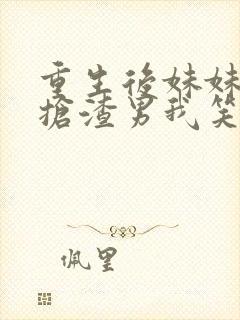 重生後妹妹
搶渣男我笑
佩里